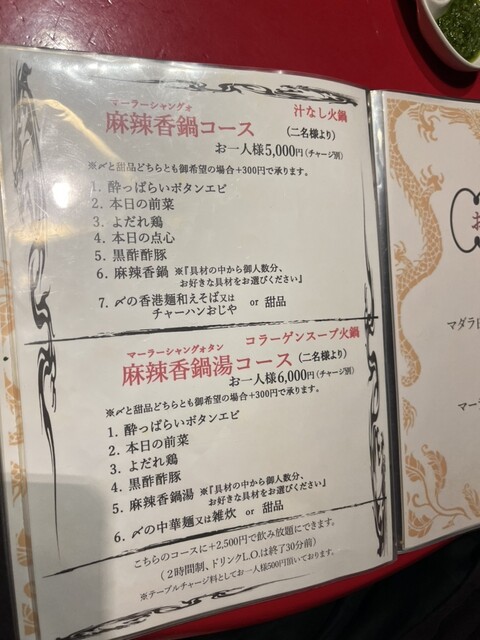 マーラーシャングォ
汁なし火鍋
麻辣香鍋コース
(二名様より)
お一人様5,000円(チャージ別)
※〆と甜品どちらとも御希望の場合+300円で承ります。
1. 酔っぱらいボタンエビ
2. 本日の前菜
3. よだれ鶏
4. 本日の点心
5. 黒酢酢豚
6. 麻辣香鍋 ※『具材の中から御人数分、
お好きな具材をお選びください』
7. 〆の香港麺和えそば又は or 甜品
チャーハンおじや
マーラーシャングォタン
コラーゲンスープ火鍋
麻辣香鍋湯コース (二名様より)
お一人様6,000円(チャージ別)
※〆と甜品どちらとも御希望の場合+300円で承ります。
1. 酔っぱらいボタンエビ
2. 本日の前菜
3. よだれ鶏
4. 黒酢酢豚
5. 麻辣香鍋湯 ※『具材の中から御人数分、
お好きな具材をお選びください』
6. 〆の中華麺又は雑炊 or 甜品
こちらのコースに+2,500円で飲み放題にできます。
(2時間制、ドリンクL.O.は終了30分前)
※テーブルチャージ料としてお一人様500円頂いております。
お
マダラ
マー